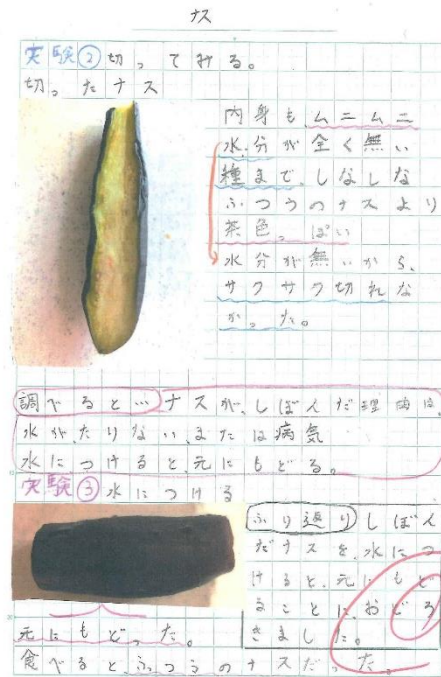 ナス
実験②切ってみる。
切ったナス
内身も、ムニムニ
水分が全く無い
種まで、しなしな
ふつうのナスより
茶色っぽい
水分が無いから、
サクサク切れな
かった。
調べると…ナスが、しぼんだ理由は、
水が、たりない、または病気
水につけると、元にもどる。
実験③水につける
ふり返りしぼん
だナスを、水につ
けると、元にもど
ることに、おどろ
きました。
元にもどった。
食べるとふつうのナスだった。